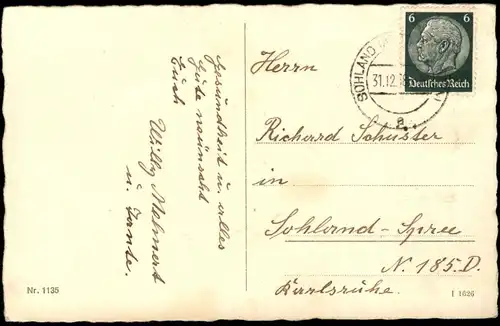 Gesundheit u. alles
Gute wünscht
Euch
Willy Mehnert
u. Tante.
Nr. 1135
Herrn
Richard Schuster
in
Sohland-Spree
N. 185.D.
Karlsruhe.
I 1626
6 6
Deutsches Reich
SOHLAND
31.12.
a